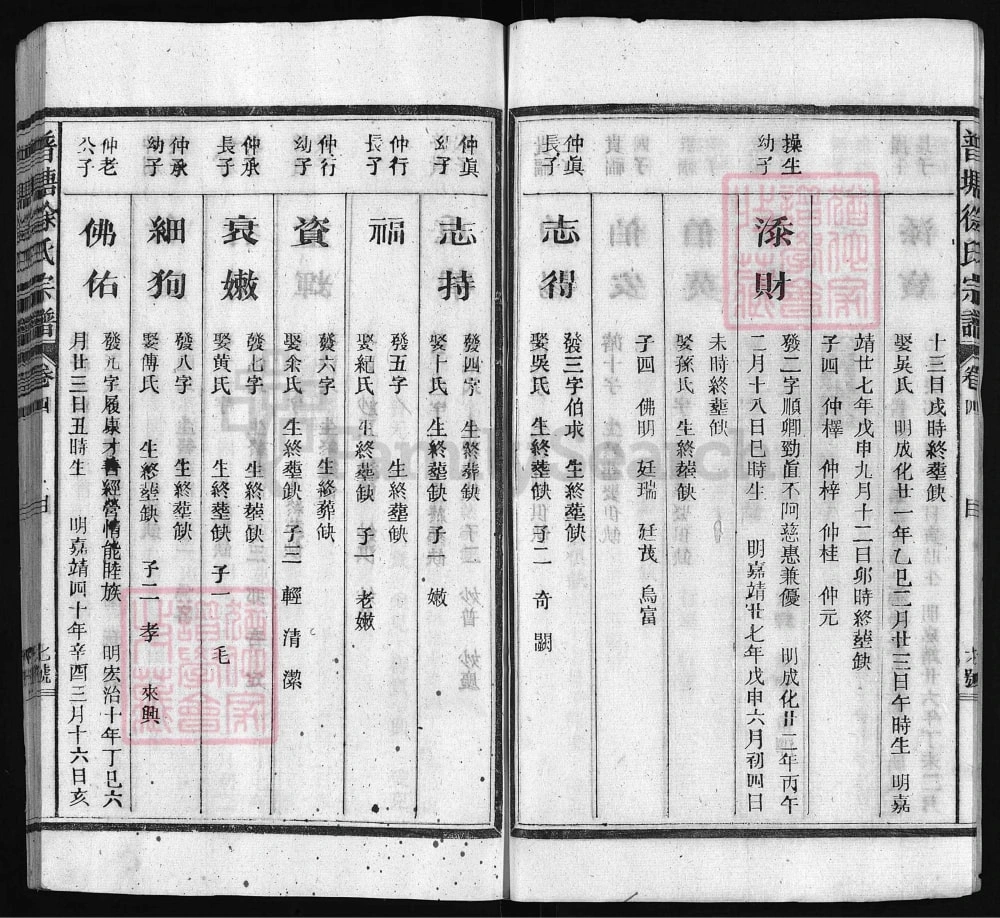 普塘徐氏宗譜
卷四
十三日戌時終塟缺
娶吳氏 明成化廿一年乙巳二月廿三日午時生 明嘉
靖廿七年戊申九月十二日卯時終塟缺
子四 仲檡 仲梓 仲桂 仲元
操生
幼子
添財
發二字順卿勁直不阿慈惠兼優 明成化廿二年丙午
二月十八日巳時生 明嘉靖廿七年戊申六月初四日
未時終塟缺
娶孫氏 生終塟缺
子四 佛明 廷瑞 廷茂 烏富
仲眞
長子
志得
發三字伯球 生終塟缺
娶吳氏 生終塟缺 子二 奇 嗣
仲眞
幼子
志持
發四字 生終葬缺
娶十氏 生終塟缺 子 嫩
仲行
長子
福
發五字 生終塟缺
娶紀氏 生終塟缺 子一 老嫩
仲行
幼子
資
發六字 生終葬缺
娶余氏 生終塟缺 子三 輕 清 潔
仲承
長子
衰嫩
發七字 生終塟缺
娶黃氏 生終塟缺 子一 毛
仲承
幼子
細狗
發八字 生終塟缺
娶傅氏 生終塟缺 子二 孝 來興
仲老
公子
佛佑
發九字履康才善經營情能睦族 明宏治十年丁巳六
月廿三日丑時生 明嘉靖四十年辛酉三月十六日亥
普塘徐氏宗譜
卷四
七號